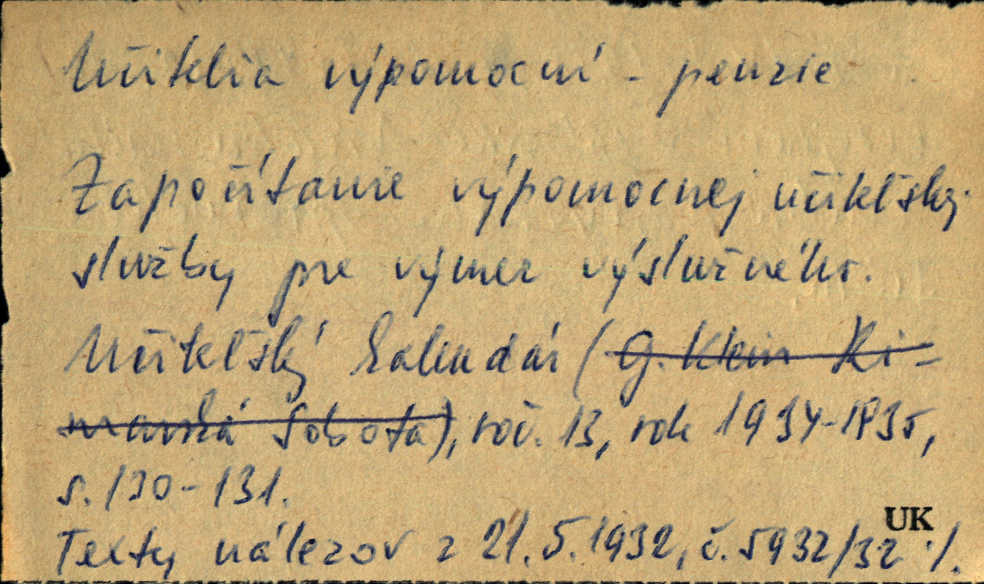 Učitelia výpomocní - penzie
Započítanie výpomocnej učiteľskej
služby pre výmer výslužného.
Učiteľský kalendár (G. Klein Ri-
mavská Sobota), roč. 13, rok 1934-1935,
s. 130-131.
UK
Texty nálezov z 21.5.1932, č. 5932/32 ./.